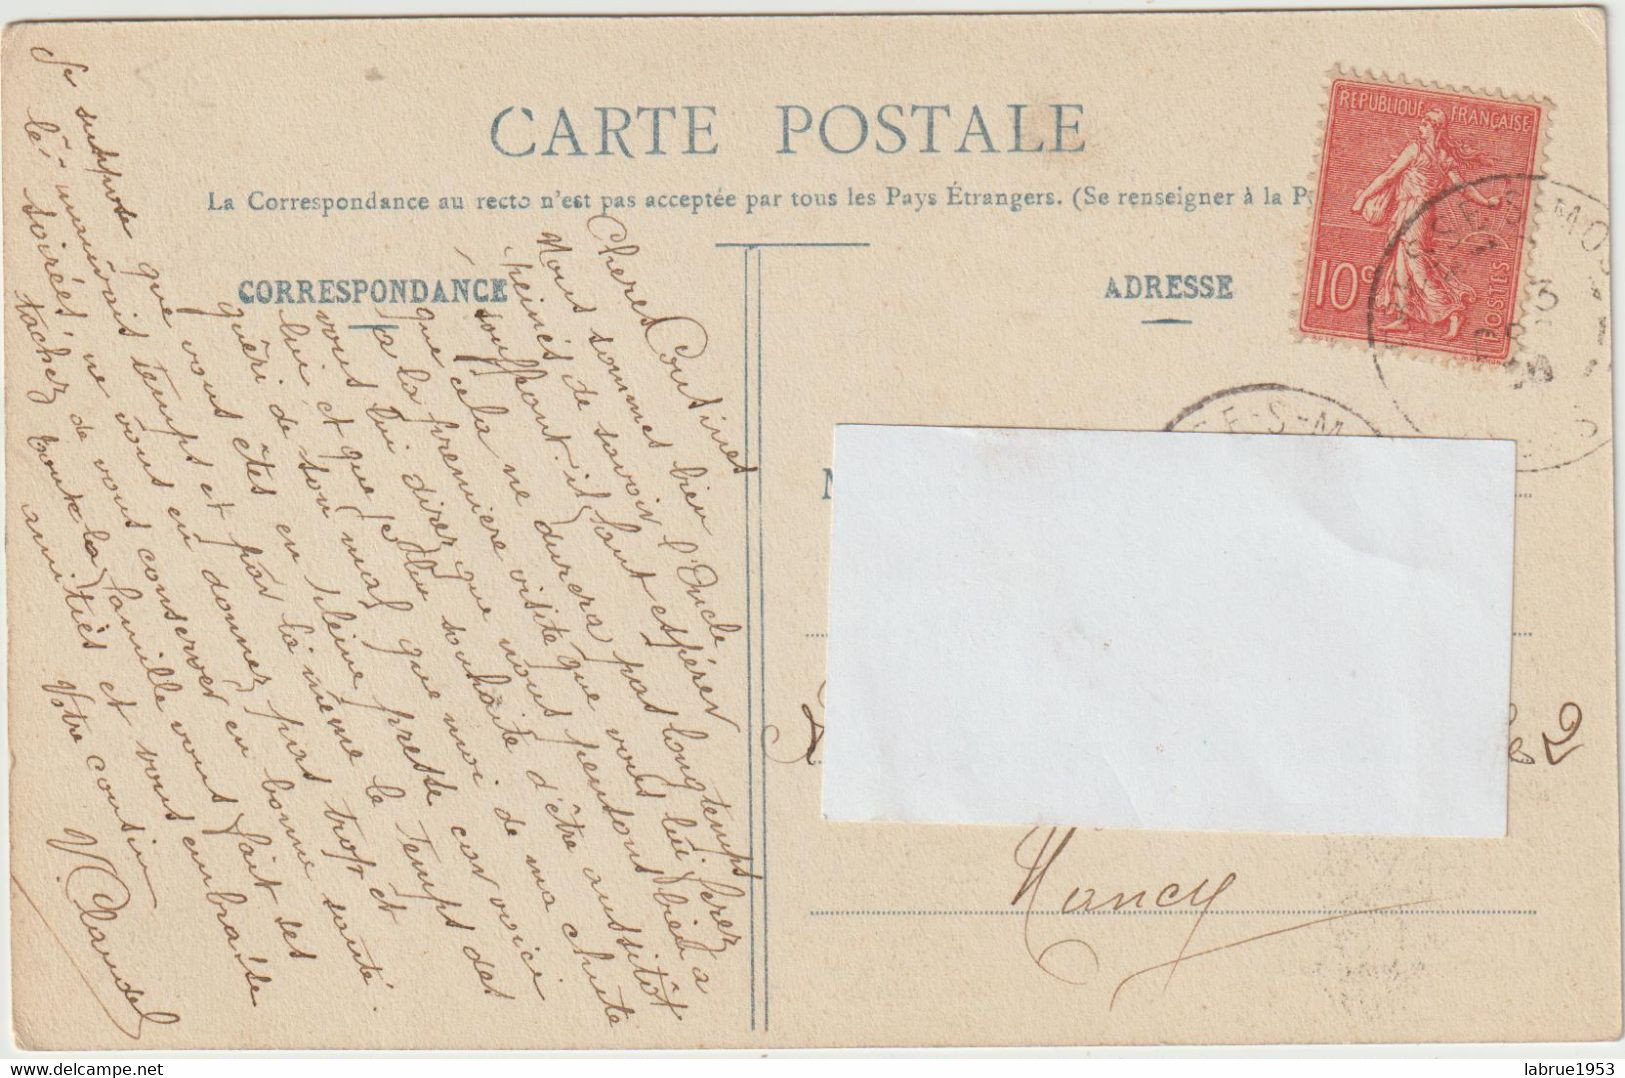 CARTE POSTALE
La Correspondance au recto n'est pas acceptée par tous les Pays Étrangers. (Se renseigner à la P
CORRESPONDANCE
ADRESSE
REPUBLIQUE FRANÇAISE
10c
POSTES
3
E-S-M
Chères Cousines
Nous sommes bien l'Oncle
peinés de savoir
souffrant il faut espérer
que cela ne durera pas longtemps
a la première visite que vous lui ferez
vous lui direz que nous pensons bien a
lui et que je lui souhaite d'être aussitôt
guéri de son mal que moi de ma chute
que vous êtes en pleine presse car voici
Je suppose
les mauvais temps et par là même le temps des
soirées, ne vous en donnez pas trop et
tachez de vous conserver en bonne santé.
toute la famille vous fait ses
amitiés et vous embrasse
Votre cousin
V. Claudel
Nancy
labrue1953
delcampe.net